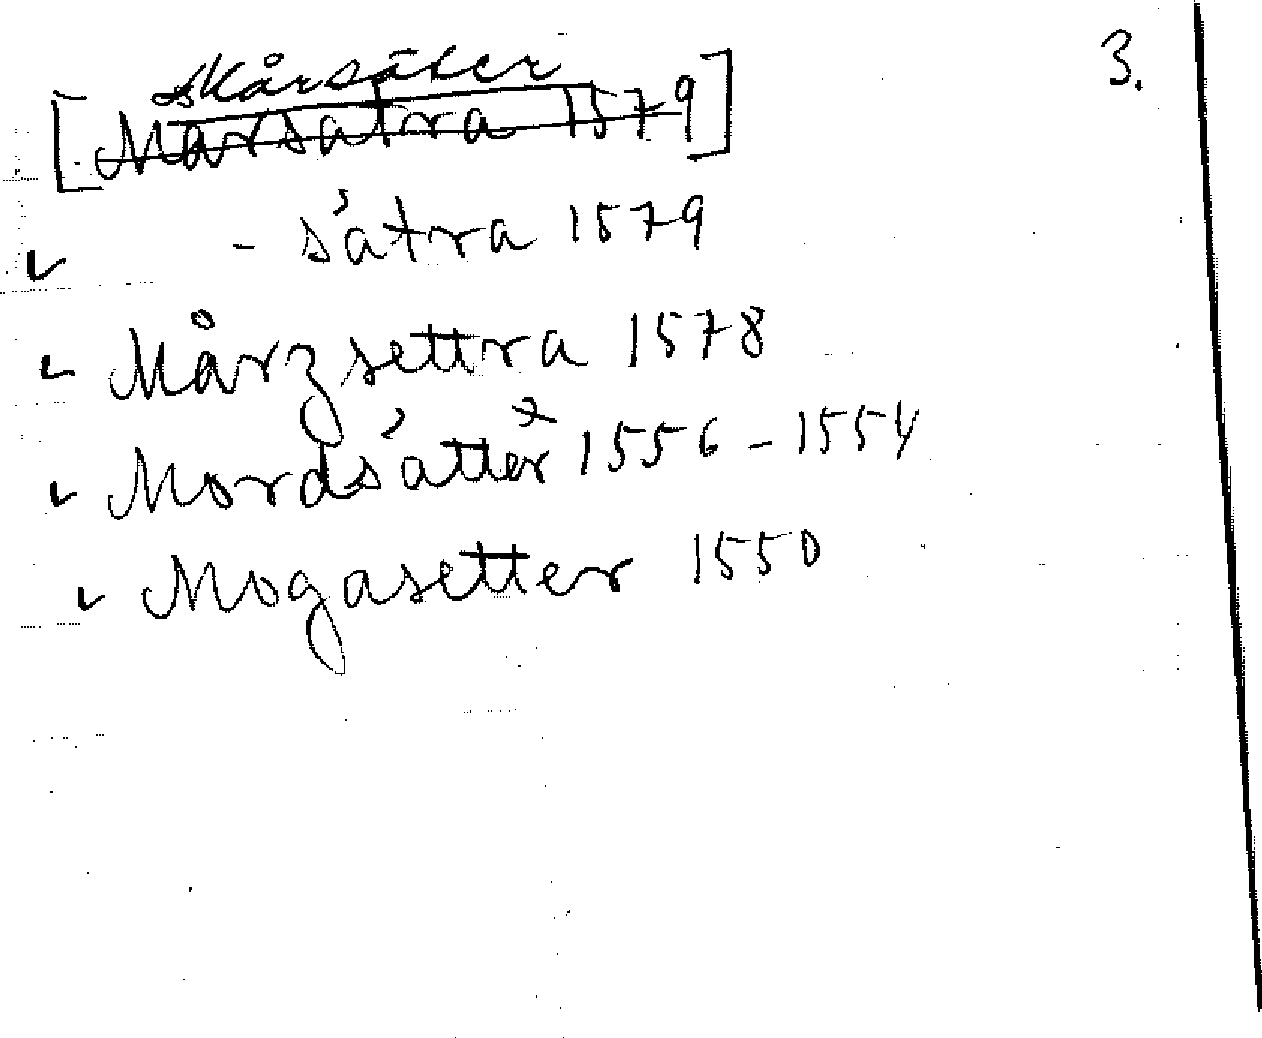 3.
Skårsäter
[Marsätra 1579]
- sätra 1579
Mårzsettra 1578
Mordsätter 1556-1554
Mogasetter 1550